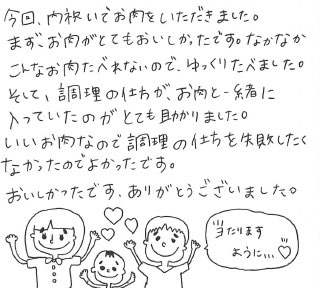 今回、内祝いでお肉をいただきました。
まず、お肉がとてもおいしかったです。なかなか
こんなお肉たべれないので、ゆっくりたべました。
そして、調理の仕方が、お肉と一緒に
入っていたのがとても助かりました。
いいお肉なので調理の仕方を失敗したく
なかったのでよかったです。
おいしかったです、ありがとうございました。
当たります
ように…♡